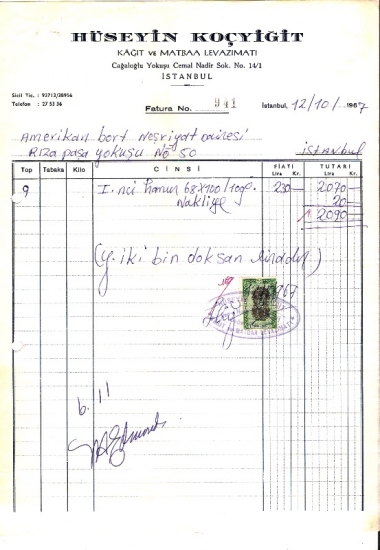 HÜSEYİN KOÇYİĞİT
KÂĞIT VE MATBAA LEVAZIMATI
Cağaloğlu Yokuşu Cemal Nadir Sok. No. 14/1
İSTANBUL
Sicil Tic. : 93713/38956
Telefon : 27 53 36
Fatura No. 941
İstanbul, 12/10/1967
Amerikan bort Neşriyat Dairesi
Rıza paşa yokuşu No 50
İstanbul
Top Tabaka Kilo CİNSİ FİATI Lira Kr. TUTARI Lira Kr.
9 I. nci hamur 68x100/ 230 — 2070 —
Nakliye 20 —
2090 —
(Y. iki bin doksan liradır)
6.11